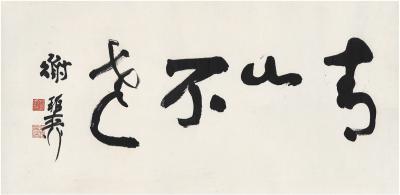 青山不老
謝稚柳